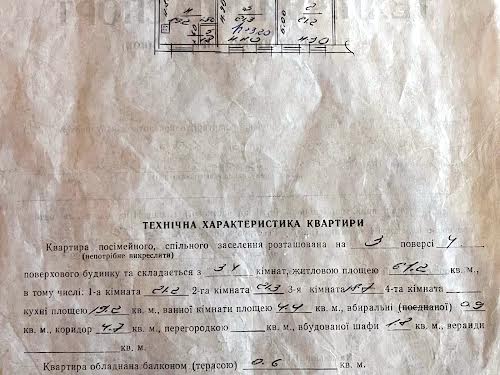 4 6 2
17.2 21.3 21.2
4.40 4.30
ТЕХНІЧНА ХАРАКТЕРИСТИКА КВАРТИРИ
Квартира посімейного, спільного заселення розташована на 3 поверсі 4
(непотрібне викреслити)
поверхового будинку та складається з 3х кімнат, житловою площею 61.2 кв. м.,
в тому числі: 1-а кімната 21.2 2-га кімната 21.3 3-я кімната 18.7 4-та кімната
кухні площею 17.2 кв. м., ванної кімнати площею 4.4 кв. м., вбиральні (поєднаної) 0.9
кв. м., коридор 4.7 кв. м., перегородкою кв. м., вбудованої шафи 1.8 кв. м., веранди
кв. м.
Квартира обладнана балконом (терасою) 0.6 кв. м.